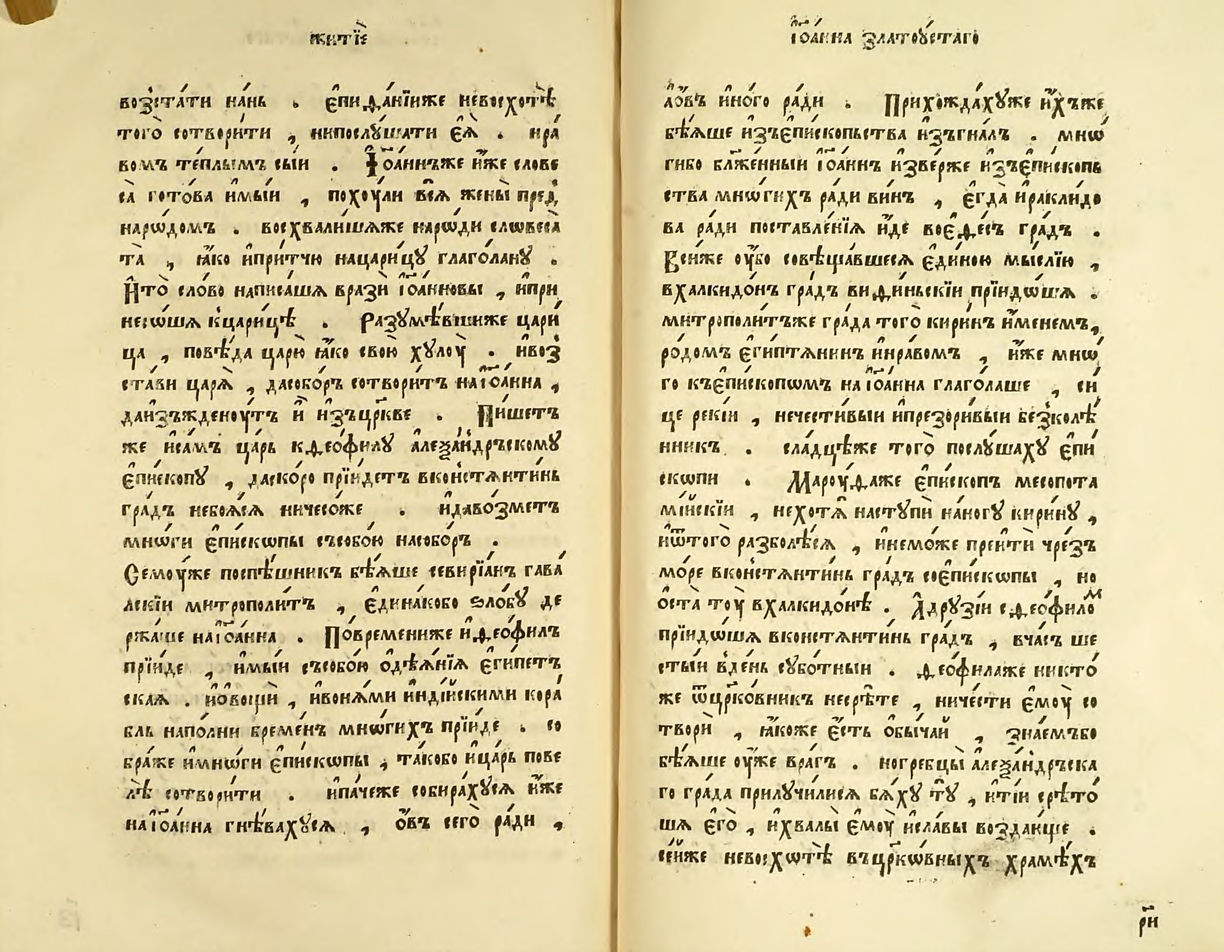 житїѐ
возста́ти на́нь . є҆пиѳа́нїиже невосхотѣ̀
того̀ сотвори́ти , нипослꙋ́шати є҆ѧ̀ . нра́
вомъ те́плымъ сы́и . І҆ѡа́ннъже и҆́же слове
са̀ гото́ва и҆мы́и , похоулѝ всѧ̀ жены̀ пред̾
наро́дѡмъ . восхвали́шѧже наро́ди словеса̀
та̀ , ꙗ҆́ко и҆при́тчю нацари́цꙋ глаго́ланꙋ .
И҆то̀ сло́во написа́шѧ вразѝ і҆ѡа́нновы , и҆при
несо́шѧ кцари́цѣ . Разꙋмѣ́вшиже цари́
ца , повѣ́да царю̀ ꙗ҆́ко свою̀ хꙋ́лоу . и҆воз̾
ста́ви царѧ̀ , дасобо́ръ сотвори́тъ наі҆ѡа́нна ,
даи҆зжденоу́тъ и҆̀ и҆зцр҃кве . Пи́шетъ
же и҆са́мъ ца́рь кѳео́филꙋ а҆леѯа́ндръскомꙋ
є҆пи́скопꙋ , даско́ро прїи́детъ вконстѧнти́нь
гра́дъ небоѧ́сѧ ничесо́же . и҆даво́зметъ
мно́ги є҆пи́скѡпы съсобо́ю насобо́ръ .
Семоу́же поспѣ́шникъ бѣ́ѧше севирїа́нъ гава́
лскїи митрополи́тъ , є҆дина́кобо ѕло́бꙋ де
ржа́ше наі҆ѡа́нна . Повре́мениже и҆ѳео́филъ
прїи́де , и҆мы́и съсобо́ю ѻ҆дѣѧ́нїѧ є҆ги́петъ
скаѧ . и҆ѻ҆во́щїи , и҆вонѧ́ми и҆нді́йскими кора́
бль напо́лни бреме́нъ мно́гихъ прїи́де . со
бра́же и҆мно́ги є҆пи́скѡпы , та́кобо и҆ца́рь пове
лѣ̀ сотвори́ти . и҆па́чеже собира́хꙋсѧ и҆̀же
наі҆ѡа́нна гнѣ́вахꙋсѧ , ѻ҆́въ сего̀ ра́ди ,
І҆ѡа́нна златоꙋ́стаго
ѻ҆́въ и҆но́го ра́ди . Прихожда́хꙋже и҆̀хъже
бѣ́ѧше и҆зъє҆пи́скопьства и҆зъгна́лъ . мнѡ́
гибо бл҃же́нныи і҆ѡа́ннъ и҆зве́рже и҆зъє҆пи́скопь
ства мнѡ́гихъ ра́ди ви́нъ , є҆гда̀ и҆ракли́до
ва ра́ди поставле́нїѧ и҆́де воє҆ѳе́съ гра́дъ .
Всиже оу҆́бо совѣща́вшесѧ є҆ди́ною мы́слїю ,
вхалкидо́нъ гра́дъ виѳи́ньскїи прїидо́шѧ .
митрополи́тъже гра́да того̀ кири́нъ и҆́менемъ ,
ро́домъ є҆ги́птѧнинъ и҆нра́вомъ , и҆́же мнѡ́
го къє҆пи́скопѡмъ наі҆ѡа́нна глаго́лаше , си́
це рекі́и , нечести́выи и҆презори́выи безколѣ́
нникъ . сла́дцѣже того̀ послꙋ́шахꙋ є҆пи́
скѡпи . Мароу́ѳаже є҆пи́скопъ месопота
мі́йскїи , нехотѧ̀ настꙋпѝ на́ногꙋ кири́нꙋ ,
и҆ѿтого̀ разболѣ́сѧ , и҆немо́же преитѝ чрез̾
мо́ре вконстѧнти́нь гра́дъ соє҆пи́скѡпы , но
ѻ҆ста̀ тоу̀ вхалкидо́нѣ . А҆дрꙋзі́и сѳео́филом
прїидо́шѧ вконстѧнти́нь гра́дъ , вча́съ ше
сты́и вде́нь сꙋбо́тныи . Ѳео́филаже никто́
же ѿцр҃ко́вникъ несрѣ́те , ничестѝ є҆моу̀ со
творѝ , ꙗ҆́коже є҆́сть ѻ҆бы́чай , зна́емъбо
бѣ́ѧше оу҆́же вра́гъ .ногребцы̀ а҆леѯа́ндръска
го гра́да прилꙋчи́лисѧ бѧ́хꙋ тꙋ̀ , и҆ті́и срѣто́
шѧ є҆го̀ , и҆хвалы̀ є҆моу̀ и҆сла́вы возда́юще .
се́йже невосхотѣ̀ въцр҃ко́вныхъ хра́мѣхъ
рн҃